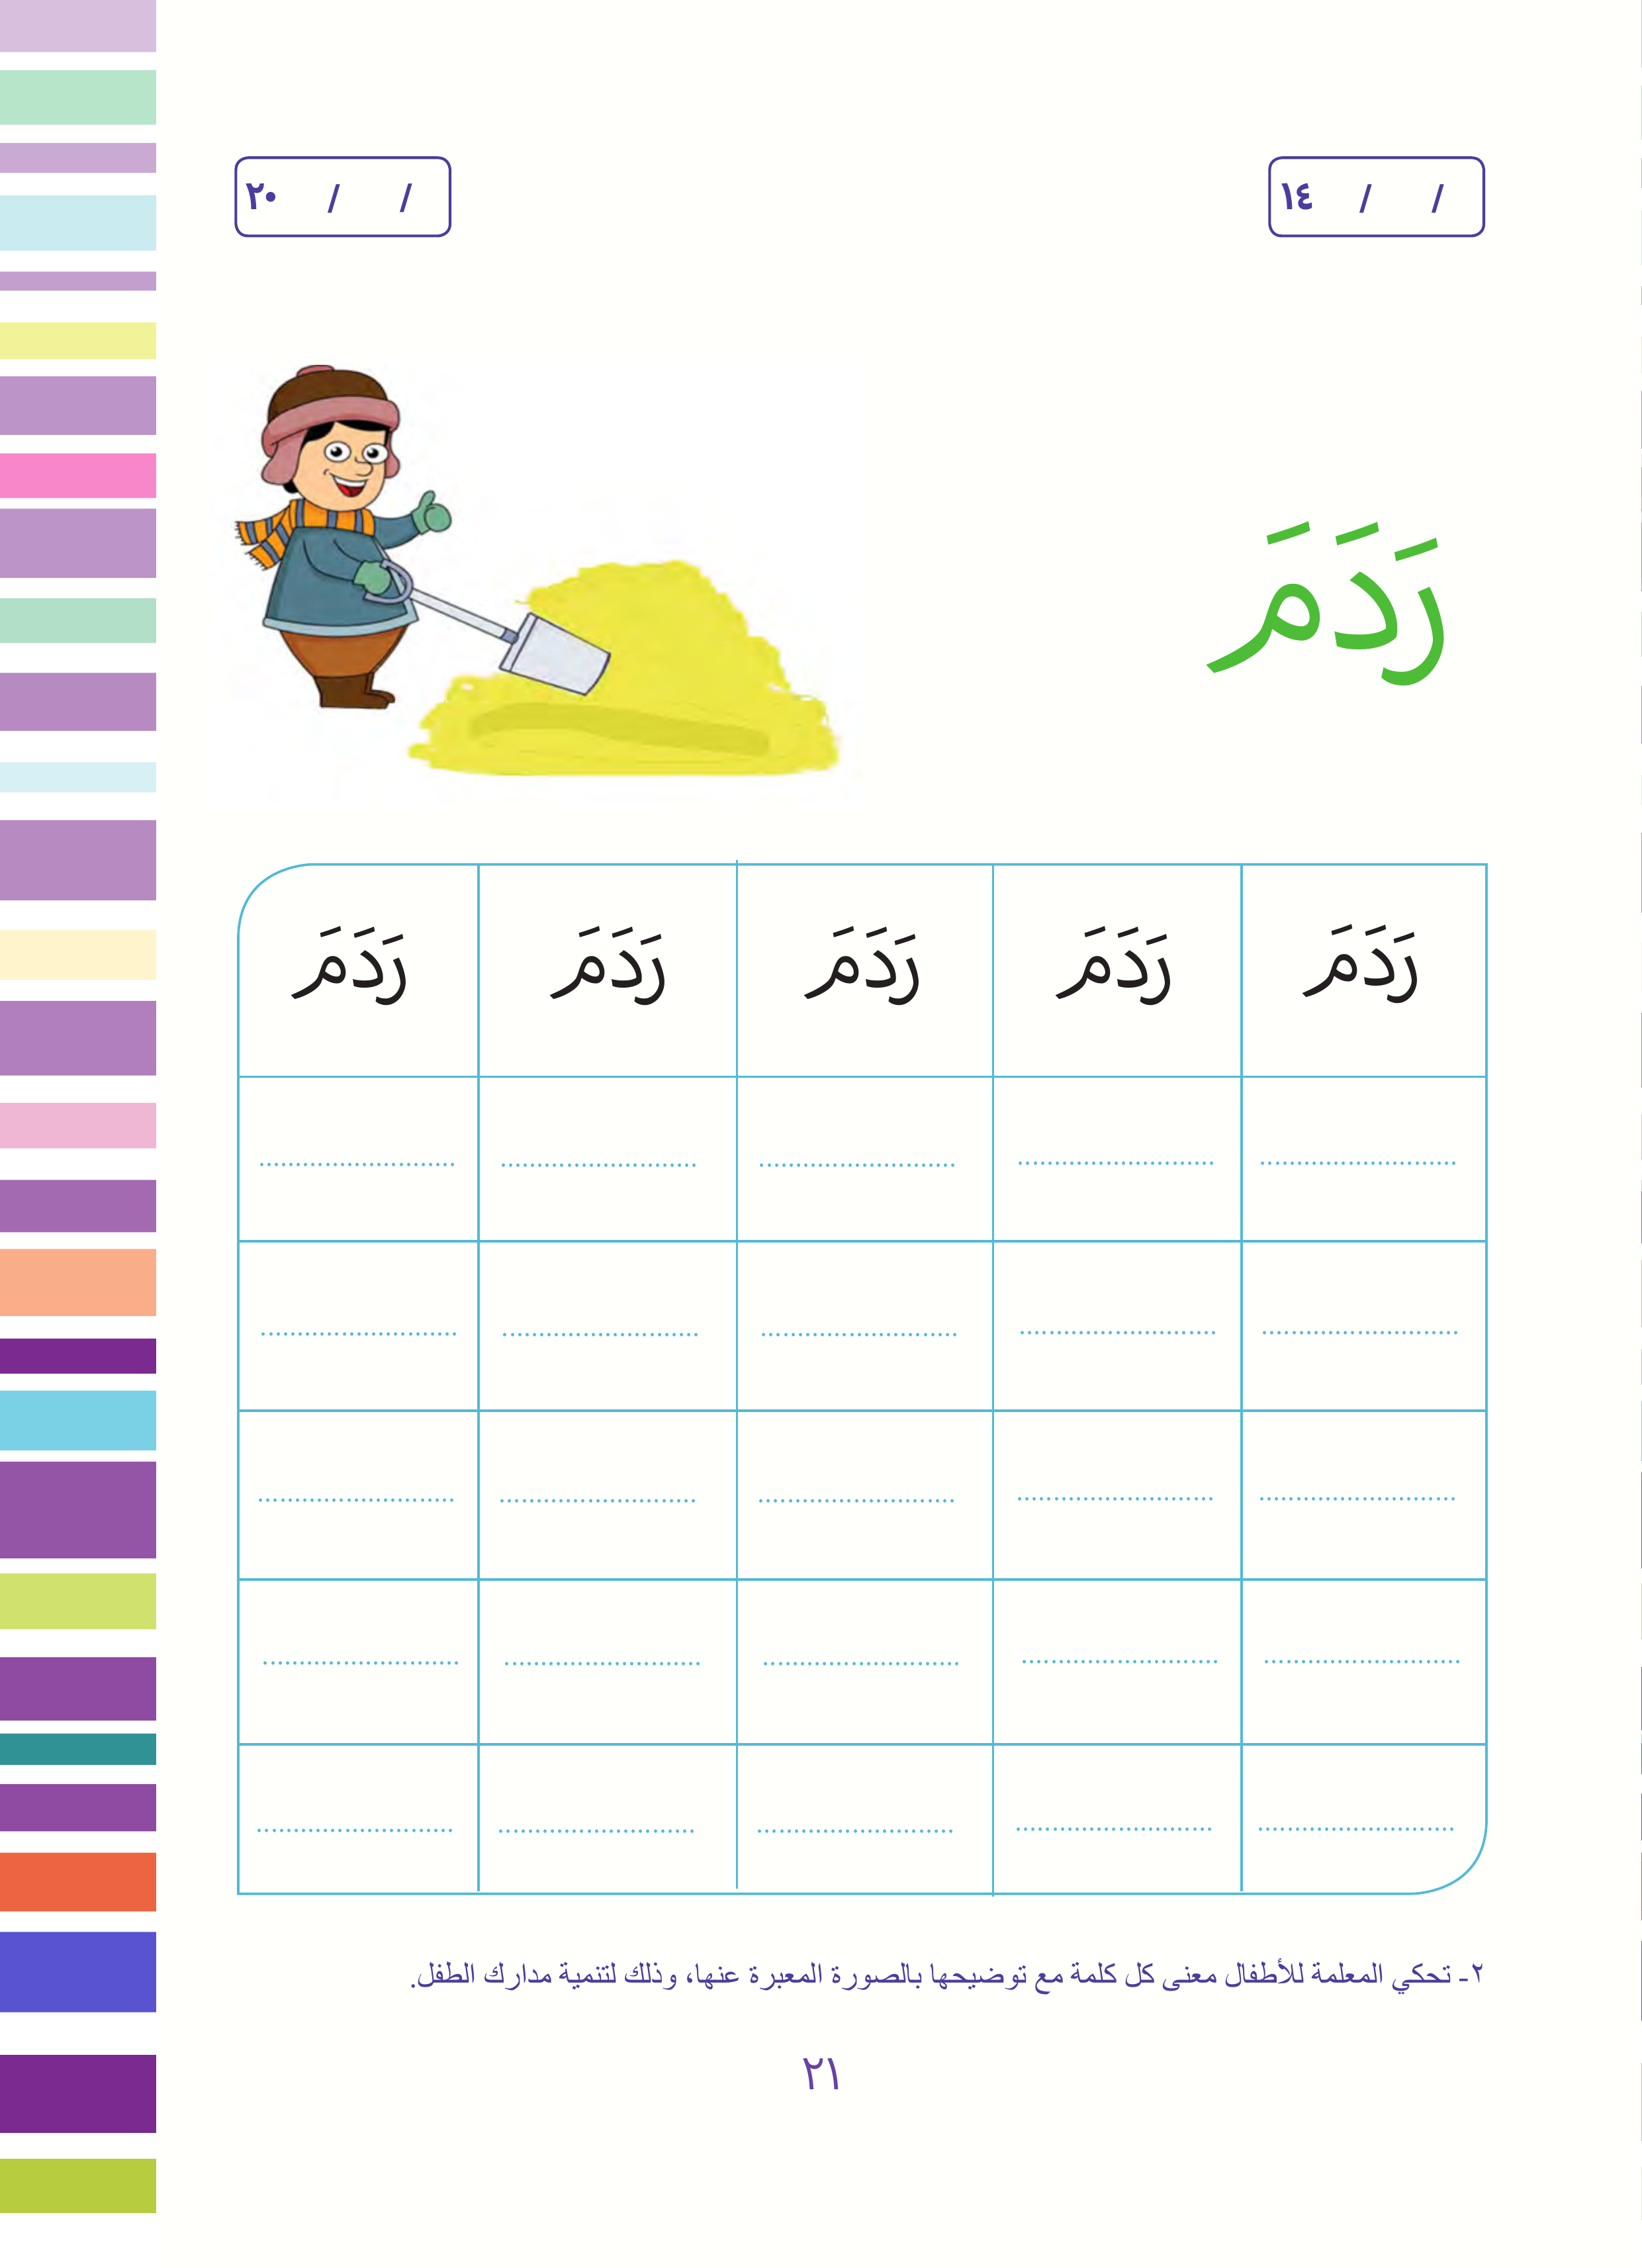 / / ١٤
/ / ٢٠
رَدَمَ
رَدَمَ رَدَمَ رَدَمَ رَدَمَ رَدَمَ
٢- تحكي المعلمة للأطفال معنى كل كلمة مع توضيحها بالصورة المعبرة عنها، وذلك لتنمية مدارك الطفل.
٢١